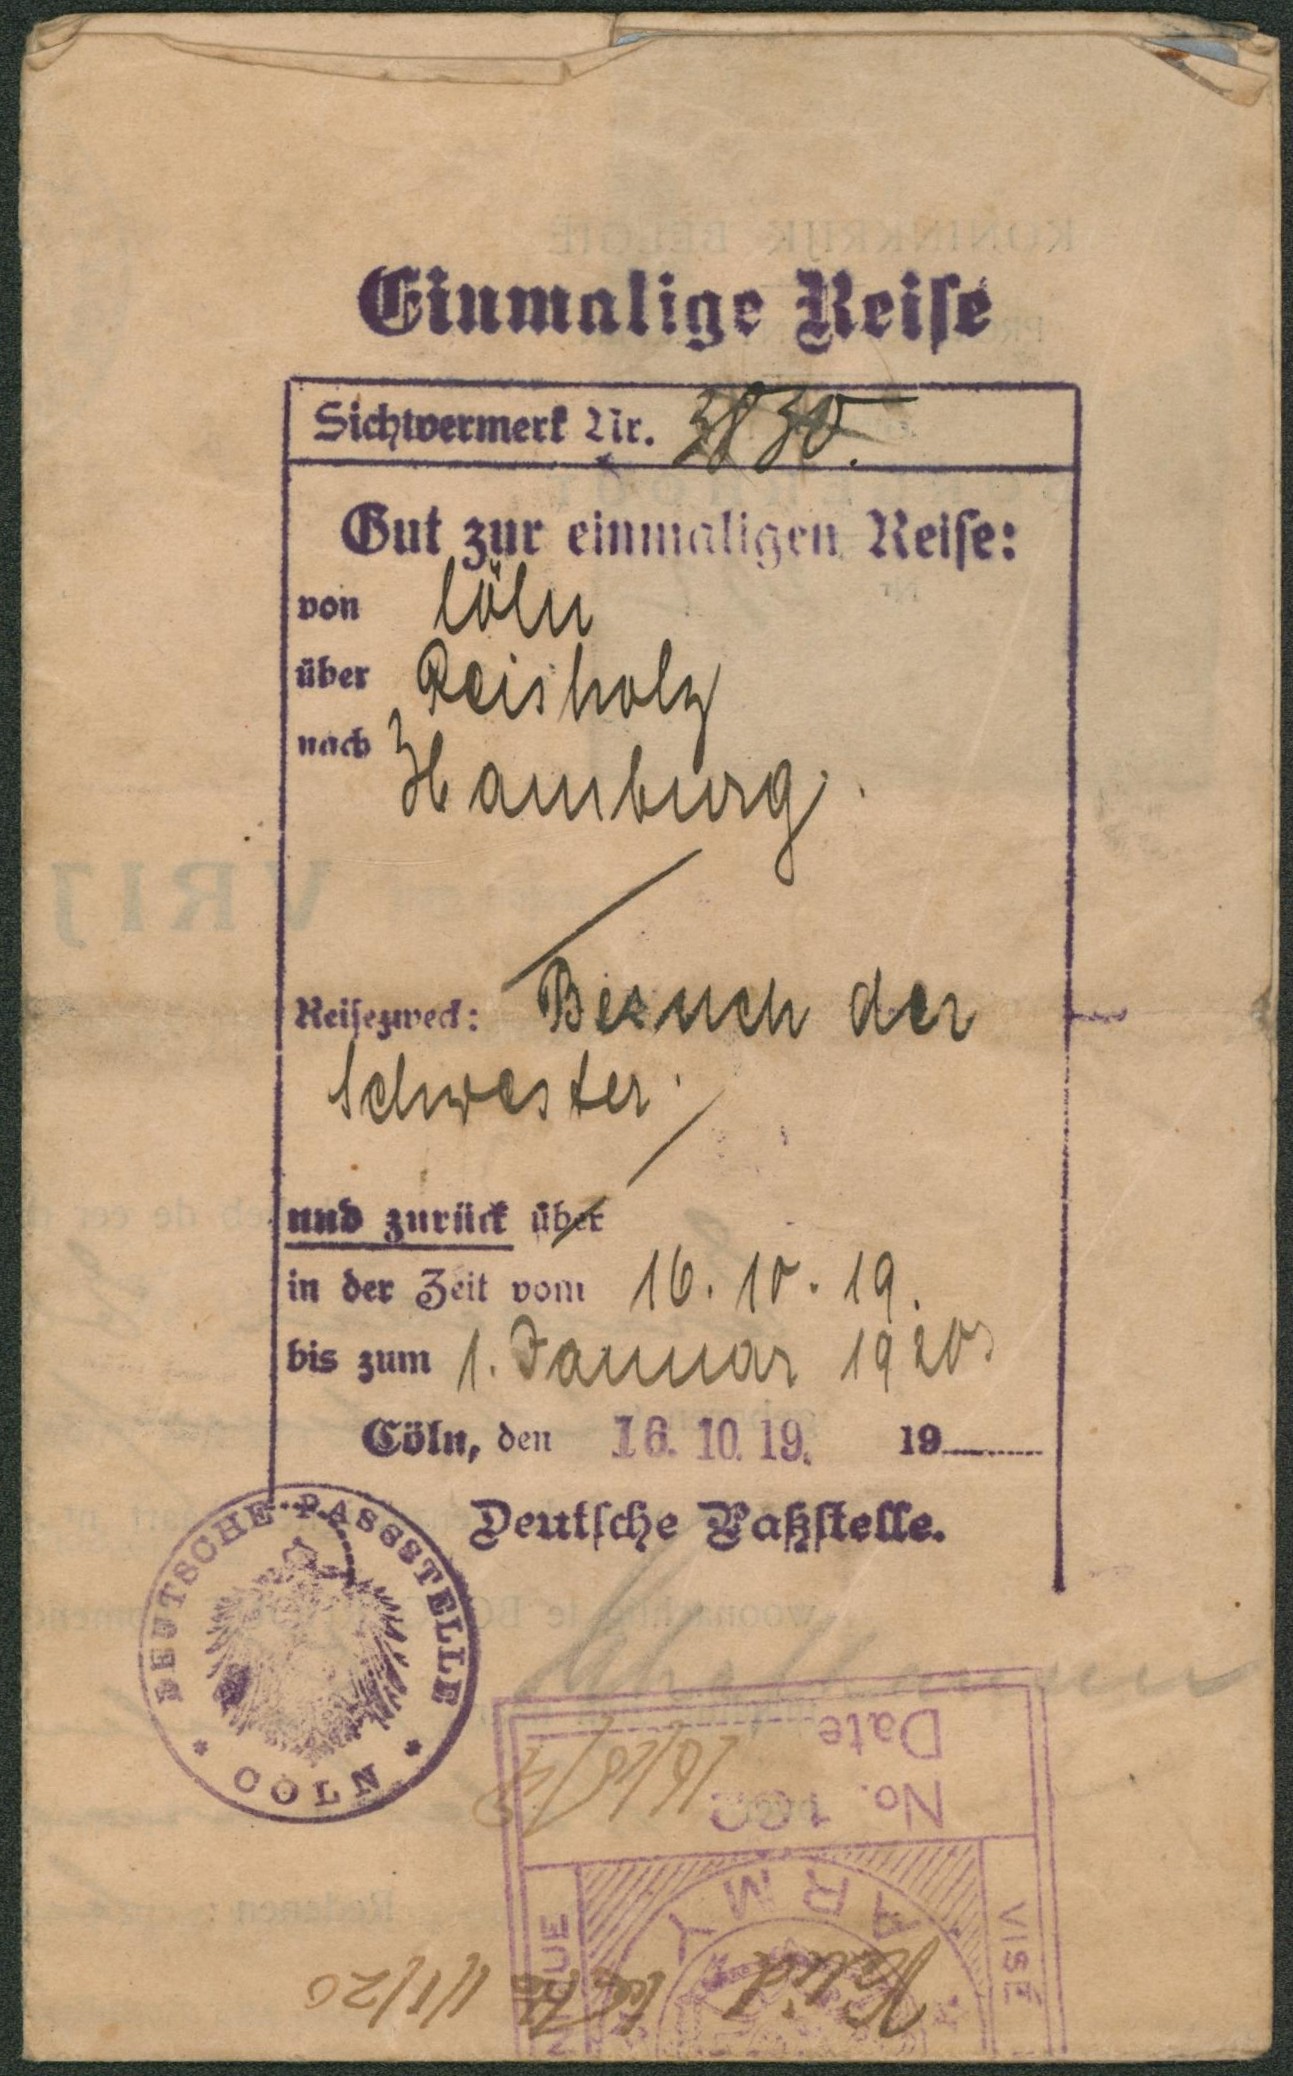 Einmalige Reise
Sichtvermerk Nr. 3830.
Gut zur einmaligen Reise:
von Cöln
über Reisholz
nach Hamburg.
Reisezweck: Besuch der
Schwester.
und zurück über
in der Zeit vom 16. 10. 19.
bis zum 1. Januar 1920
Cöln, den 16. 10. 19. 19
Deutsche Paßstelle.
DEUTSCHE PASSSTELLE
CÖLN
Date
No.
ARMY
VISÉ
Valid
1/1/20
KONINKRIJK BELGIE
VRIJ